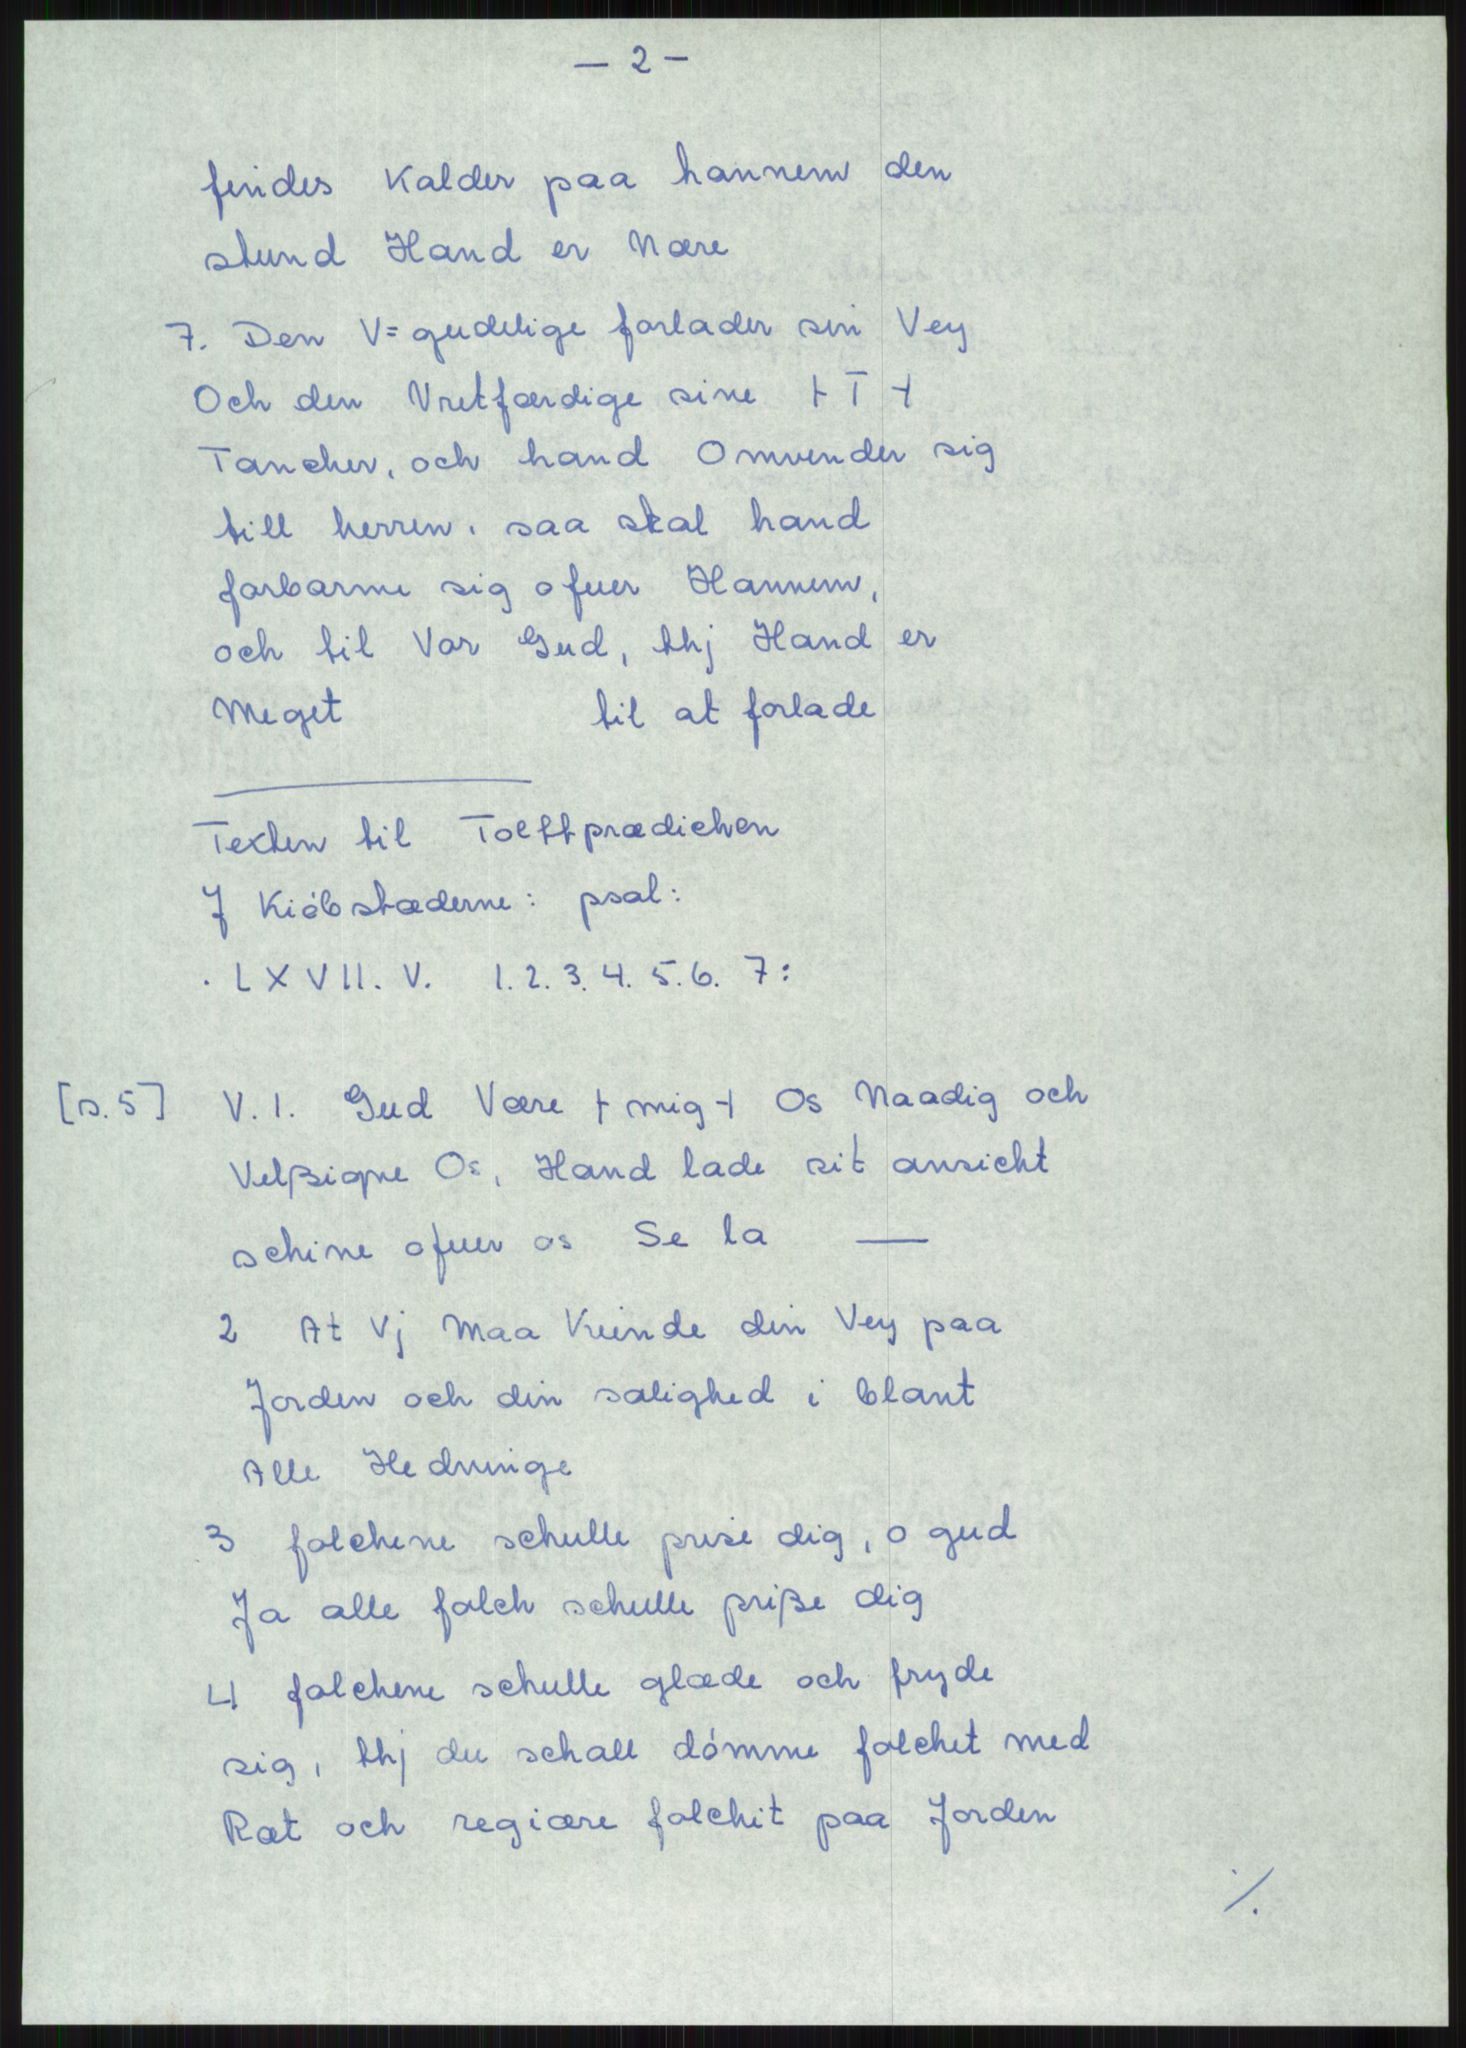 — 2 —
findes Kalder paa hannem den
stund Hand er Nære
7. Den V=gudelige forlader sin Vey
Och den Vretfærdige sine + T +
Tancher, och hand Omvender sig
till herren, saa skal hand
forbarme sig ofuer Hannem,
och til Vor Gud, thj Hand er
Meget til at forlade
Texten til Tolttprædichen
J Kióbstæderne: psal:
. LXVII. V. 1.2.3.4.5.6. 7:
[s.5] V.1. Gud Være + mig + Os Naadig och
Velßigne Os, Hand lade sit ansicht
schine ofuer os Se la —
2 At Vj Maa Kiende din Vey paa
Jorden och din salighed i blant
Alle Hedninge
3 folchene schulle prise dig, o gud
Ja alle folch schulle priße dig
4 folchene schulle glæde och fryde
sig, thj du schall dómme folchet med
Ræt och regiære folchit paa Jorden
./.